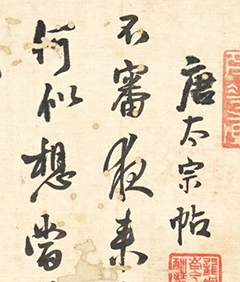 唐太宗帖
不審夜来
何似想當